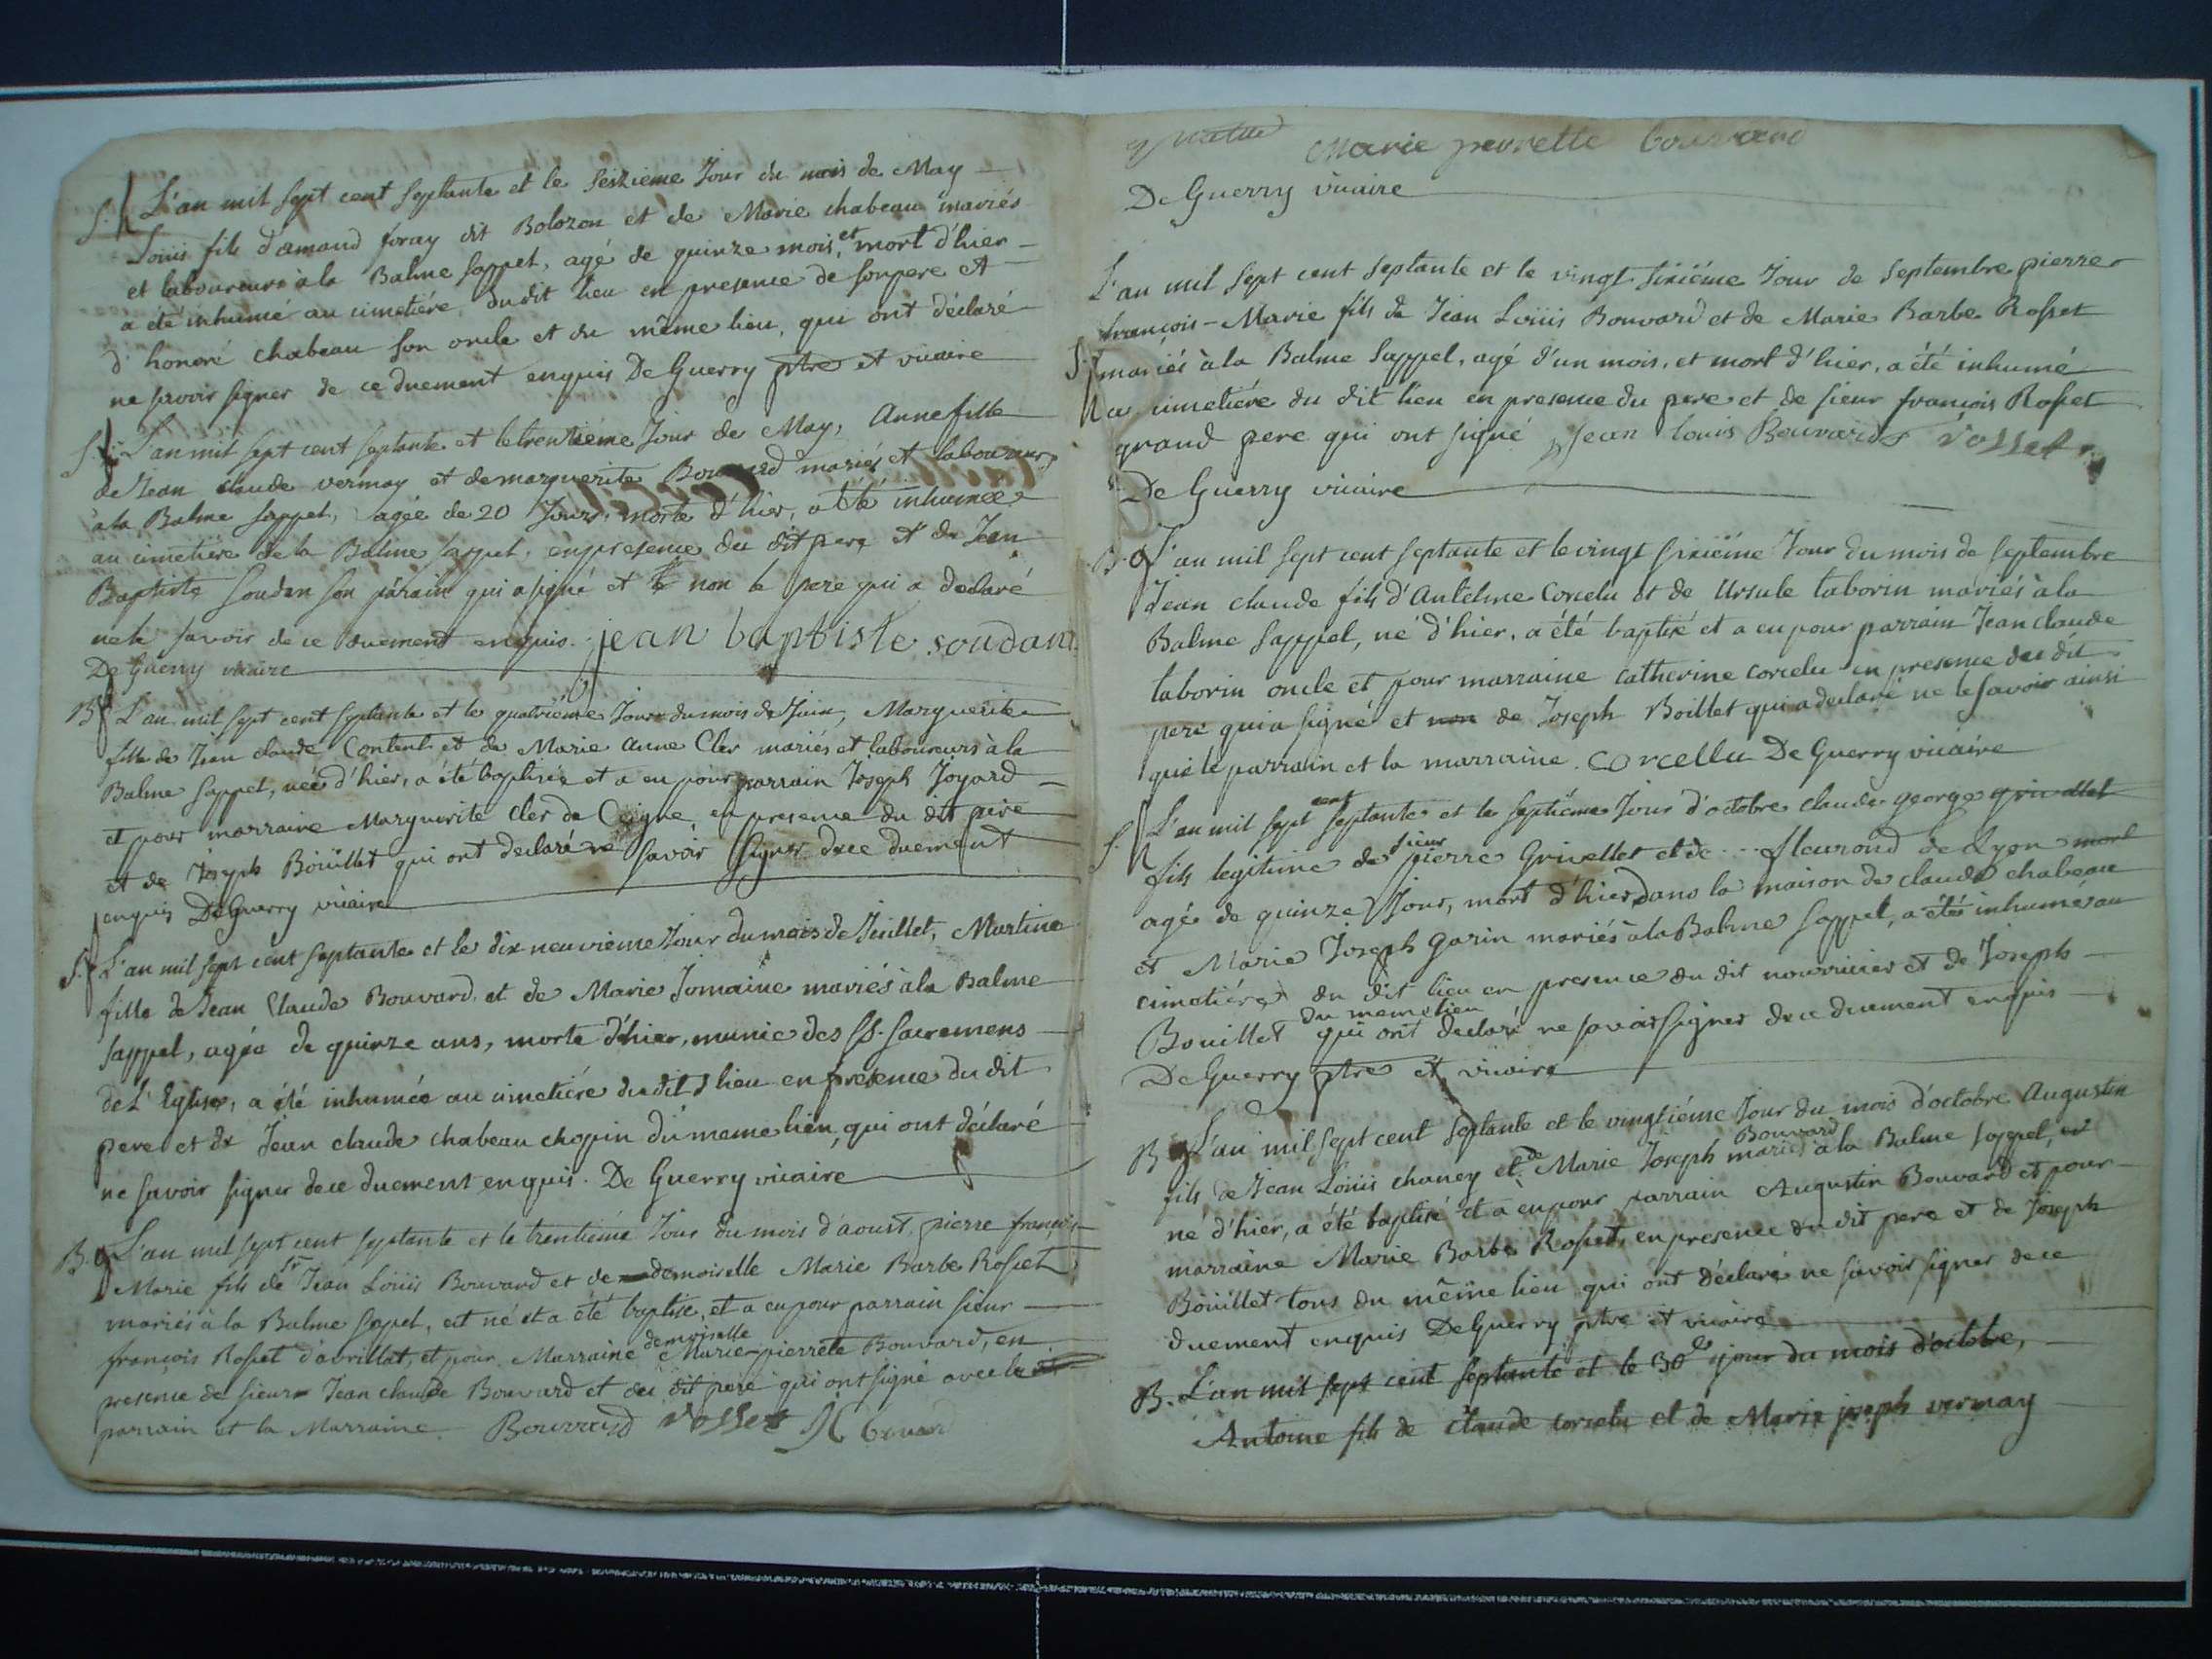 S. L'an mil sept cent septante et le seizieme Jour du mois de May
Loüis fils d'amand foray dit Bolozon et de Marie chabeau mariés
et laboureurs à la Balme sappel, agé de quinze mois, et mort d'hier
a été inhumé au cimetiére dudit lieu en presence de son pere et
d'honoré chabeau son oncle et du même lieu, qui ont déclaré
ne savoir signer de ce duement enquis De Guerry ptre et vicaire
S. L'an mil sept cent septante et le trentieme Jour de May, Anne fille
de Jean claude vermay et de marguerite Bouvard mariés et laboureurs
à la Balme sappel, agée de 20 Jours, morte d'hier, a été inhumée
au cimetiére de la Balme sappel, en presence du dit pere et de Jean
Baptiste soudan son párain qui a signé et non le pere qui a déclaré
ne le savoir de ce duement enquis. jean baptiste soudan
De Guerry vicaire
B L'an mil sept cent septante et le quatriéme Jour du mois de Juin, Marguerite
fille de Jean claude Content et de Marie Anne Cler mariés et laboureurs à la
Balme sappel, née d'hier, a été baptisée et a eu pour parrain Joseph Joyard
et pour marraine Marguerite Cler de Ceigne, en presence du dit pere
et de Joseph Boüillet qui ont declaré ne savoir signer de ce duement
enquis De Guerry vicaire
S. L'an mil sept cent septante et le dix neuvieme Jour du mois de Juillet, Martine
fille de Jean Claude Bouvard et de Marie Jomaine mariés à la Balme
sappel, agée de quinze ans, morte d'hier, munie des SS. sacremens
de L'Eglise, a été inhumée au cimetiére du dit lieu en presence du dit
pere et de Jean claude chabeau chopin du même lieu, qui ont déclaré
ne savoir signer de ce duement enquis. De Guerry vicaire
B. L'an mil sept cent septante et le trentiéme Jour du mois d'aoust, pierre françois
Marie fils de Sr Jean Loüis Bouvard et de demoiselle Marie Barbe Rosset
mariés à la Balme sapel, est né et a été baptisé, et a eu pour parrain sieur
françois Rosset d'avrillat, et pour Marraine demoiselle Marie pierrete Bouvard, en
presence de sieur Jean claude Bouvard et du dit pere qui ont signé avec le
parrain et la Marraine. Bouvard rosset
Marie perrette bouvard
De Guerry vicaire
L'an mil sept cent septante et le vingt sixiéme Jour de septembre pierre
françois-Marie fils de Jean Loüis Bouvard et de Marie Barbe Rosset
S. mariés à la Balme sappel, agé d'un mois, et mort d'hier, a été inhumé
au cimetiére du dit lieu en presence du pere et de sieur françois Rosset
grand pere qui ont signé Jean louis Bouvard rosset
De Guerry vicaire
B L'an mil sept cent septante et le vingt sixiéme Jour du mois de septembre
Jean claude fils d'Antelme Corcelu et de Ursule taborin mariés à la
Balme sappel, né d'hier, a été baptisé et a eu pour parrain Jean claude
taborin oncle et pour marraine catherine corcelu en presence du dit
pere qui a signé et non de Joseph Boillet qui a declaré ne le savoir ainsi
que le parrain et la marraine. corcellu De Guerry vicaire
S. L'an mil sept cent septante et le septiéme Jour d'octobre claude george grivellet
fils legitime de sieur pierre Grivellet et de ... fleurond de Lyon mort
agé de quinze Jour, mort d'hier dans la maison de claude chabeau
et Marie Joseph Garin mariés à la Balme sappel, a étés inhumés au
cimetiére du dit lieu en presence du dit nourricier et de Joseph
Bouillet du meme lieu qui ont declaré ne savoir signer de ce duement enquis
De Guerry ptre et vicaire
B L'an mil sept cent septante et le vingtiéme Jour du mois d'octobre Augustin
fils de Jean Loüis chaney et de Marie Joseph Bouvard mariés à la Balme sappel, est
né d'hier, a été baptisé et a eu pour parrain Augustin Bouvard et pour
marraine Marie Barbe Rosset, en presence du dit pere et de Joseph
Boüillet tous du même lieu qui ont déclaré ne savoir signer de ce
duement enquis De Guerry ptre et vicaire
B. L'an mil sept cent septante et le 30e jour du mois d'octobre,
Antoine fils de claude corcelu et de Marie joseph vermay